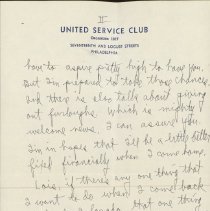 II
UNITED SERVICE CLUB
SEVENTEENTH AND LOCUST STREETS
PHILADELPHIA
have to aspire pretty high to have you.
But I'm prepared to take those chances
and there is also talk about giving
out furloughs. Which is mighty
welcome news, I can assure you.
I'm in hopes that I'll be a little better
fixed financially when I come home.
Lois, if there's any one thing that
I want to do when I come back
that one thing